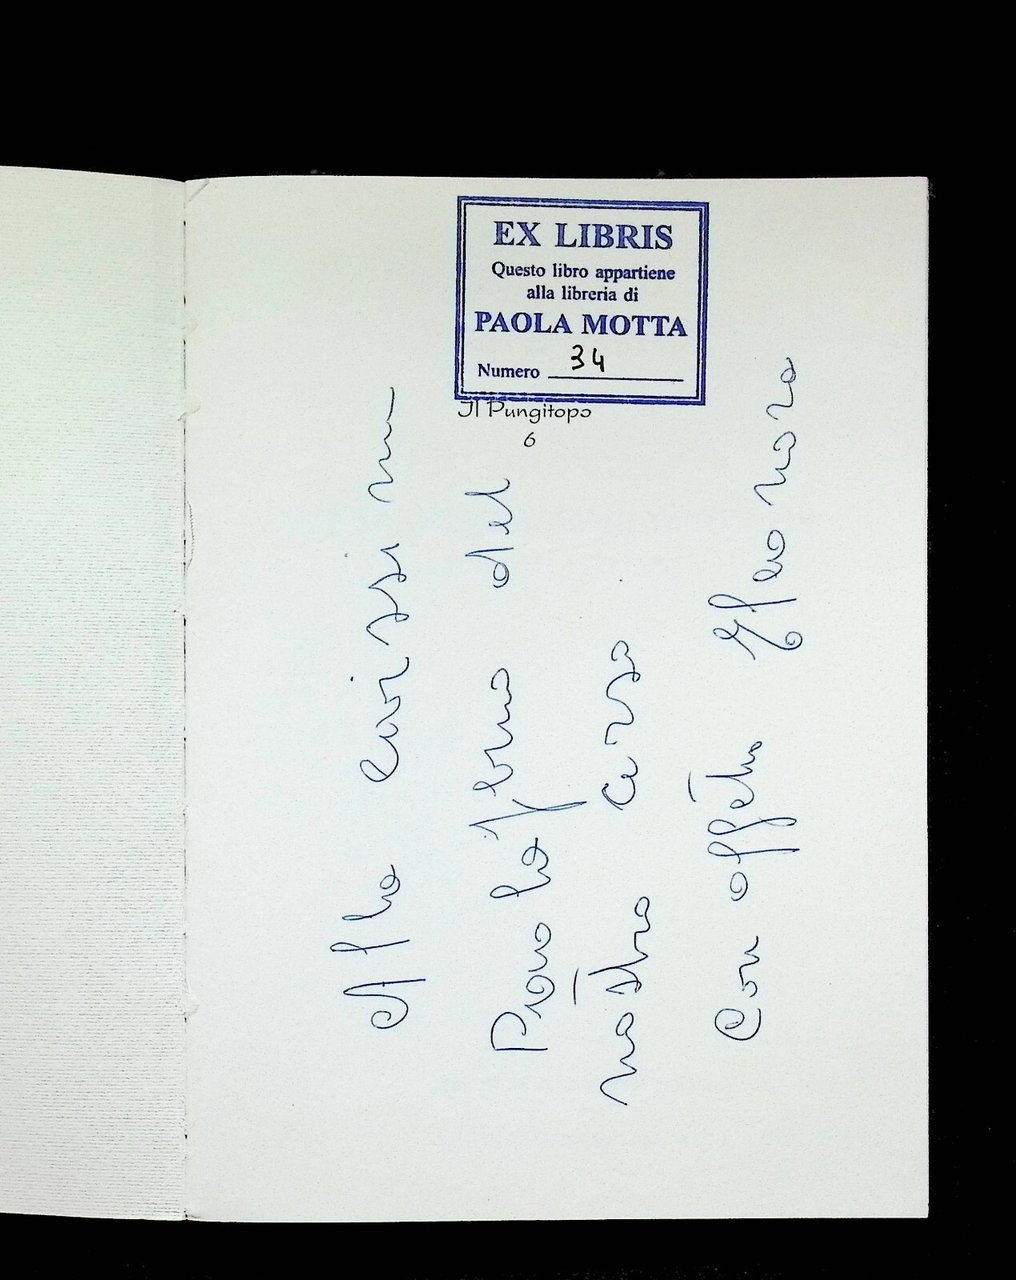 EX LIBRIS
Questo libro appartiene
alla libreria di
PAOLA MOTTA
Numero 34
Il Pungitopo
6
Alla carissima
Paola del
nostro corso
Con affetto Eleonora